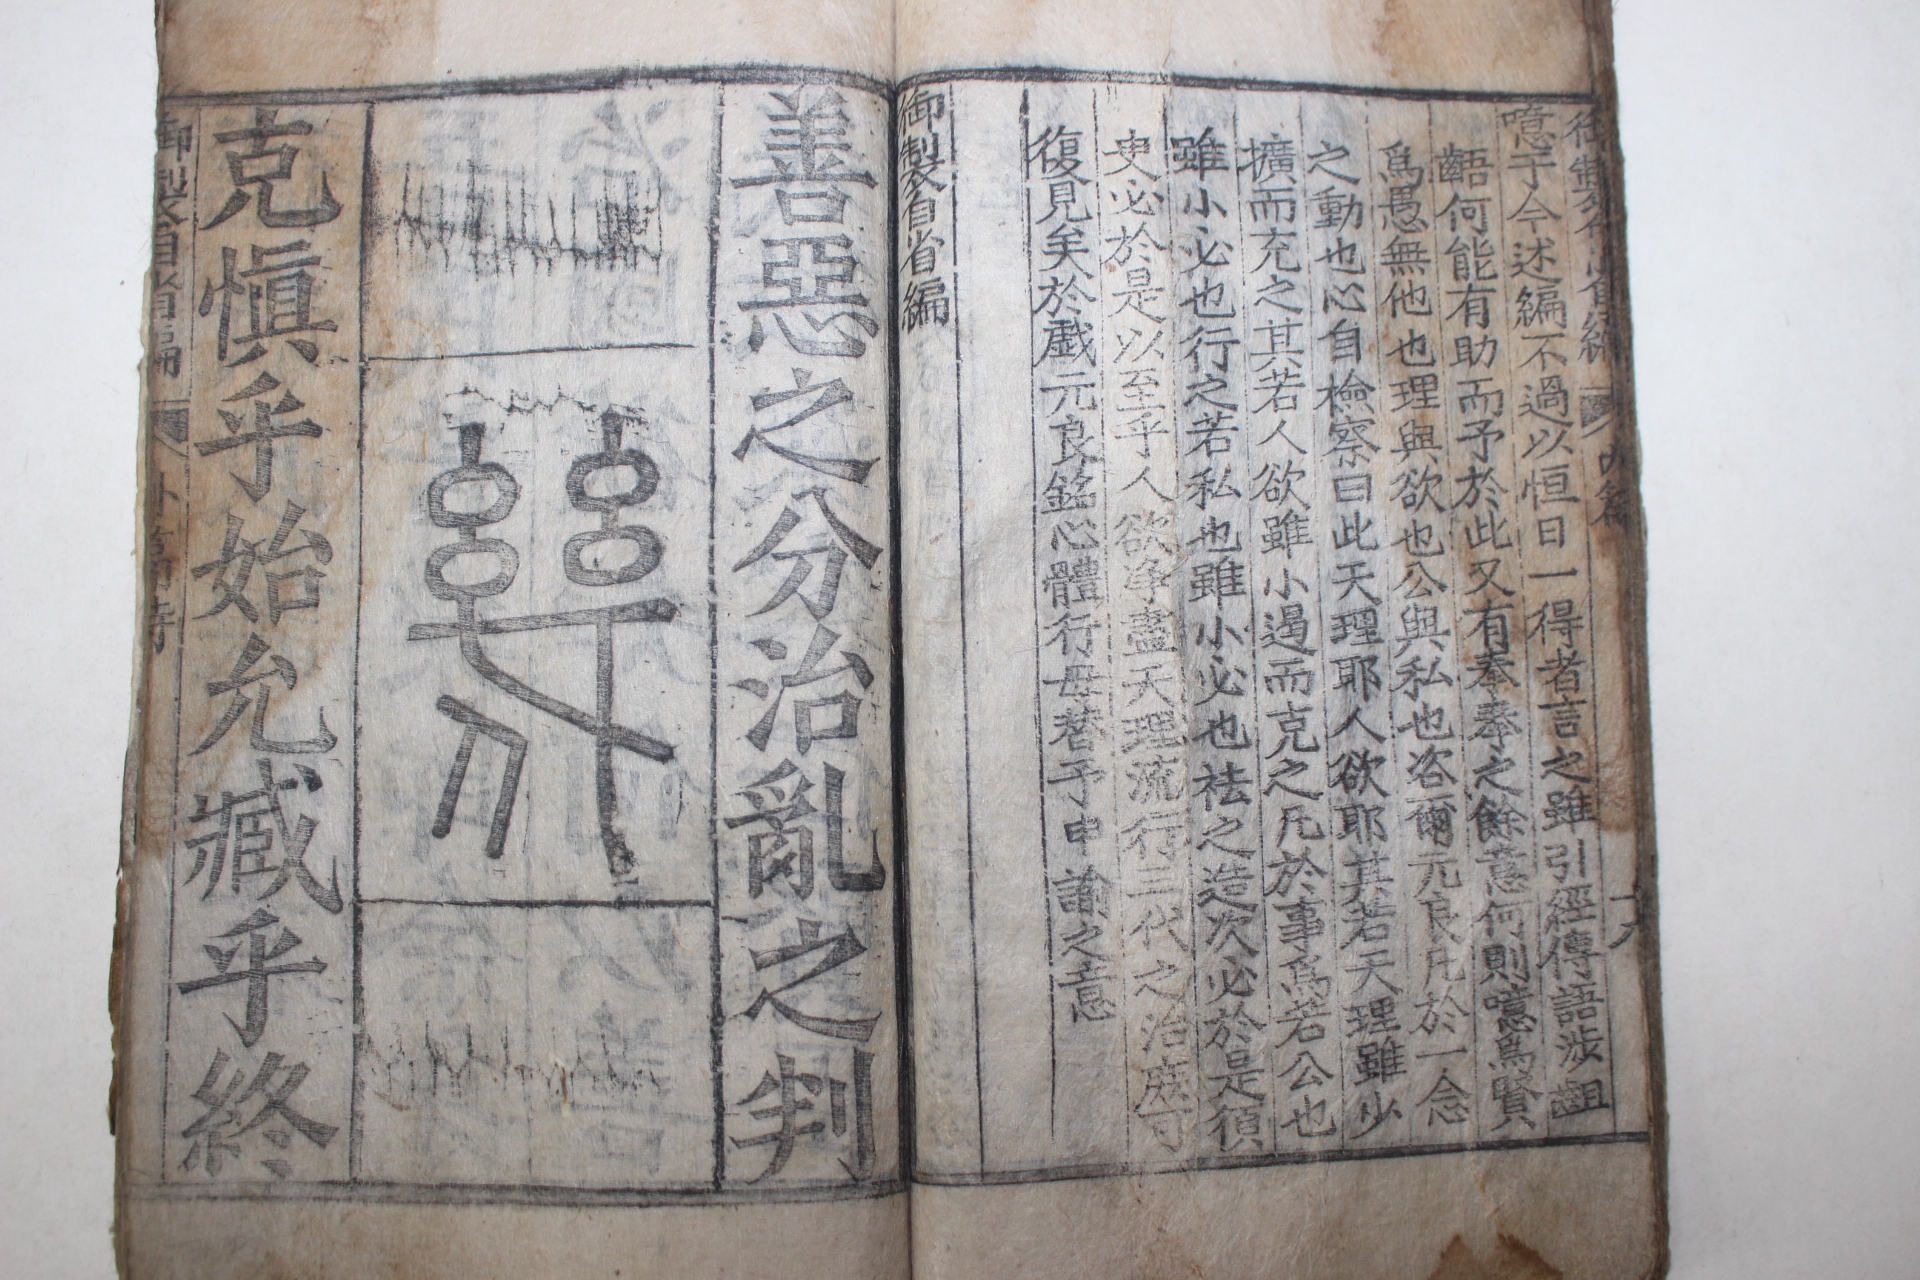 御製自省編 內篇 六
噫于今述編不過以恒日一得者言之雖引經傳語涉齟
齬何能有助而予於此又有拳拳之餘意何則噫爲賢
爲愚無他也理與欲也公與私也咨爾元良凡於一念
之動也心自檢察曰此天理耶人欲耶其若天理雖少
擴而充之其若人欲雖小遏而克之凡於事爲若公也
雖小必也行之若私也雖小必也祛之造次必於是須
臾必於是以至乎人欲淨盡天理流行三代之治庶可
復見矣於戲元良銘心體行毋替予申諭之意
御製自省編
善惡之分治亂之判
幾
克愼乎始允臧乎終
御製自省編 外篇